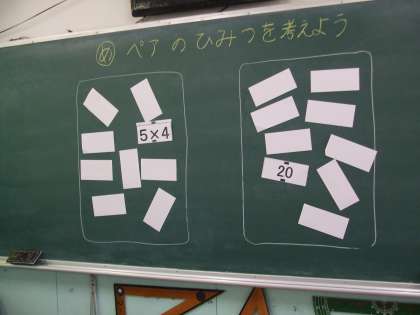 め ペアのひみつを考えよう
5×4
20